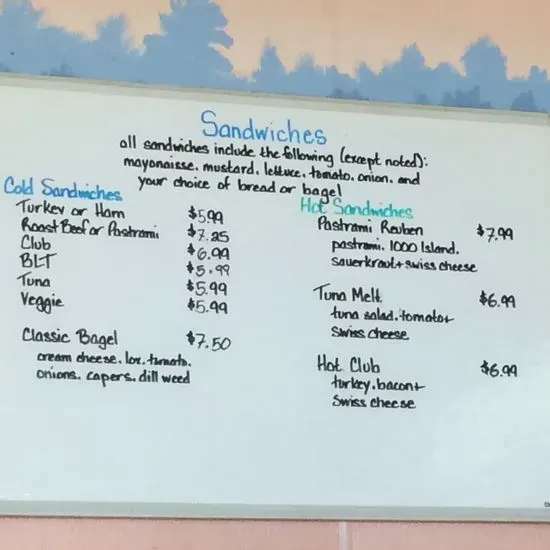 Sandwiches
all sandwiches include the following (except noted):
mayonaisse, mustard, lettuce, tomato, onion, and
your choice of bread or bagel
Cold Sandwiches
Turkey or Ham $5.99
Roast Beef or Pastrami $7.25
Club $6.99
BLT $5.99
Tuna $5.99
Veggie $5.99
Classic Bagel $7.50
cream cheese, lox, tomato,
onions, capers, dill weed
Hot Sandwiches
Pastrami Reuben $7.99
pastrami, 1000 Island,
sauerkraut + swiss cheese
Tuna Melt $6.99
tuna salad, tomato +
Swiss cheese
Hot Club $6.99
turkey, bacon +
Swiss cheese